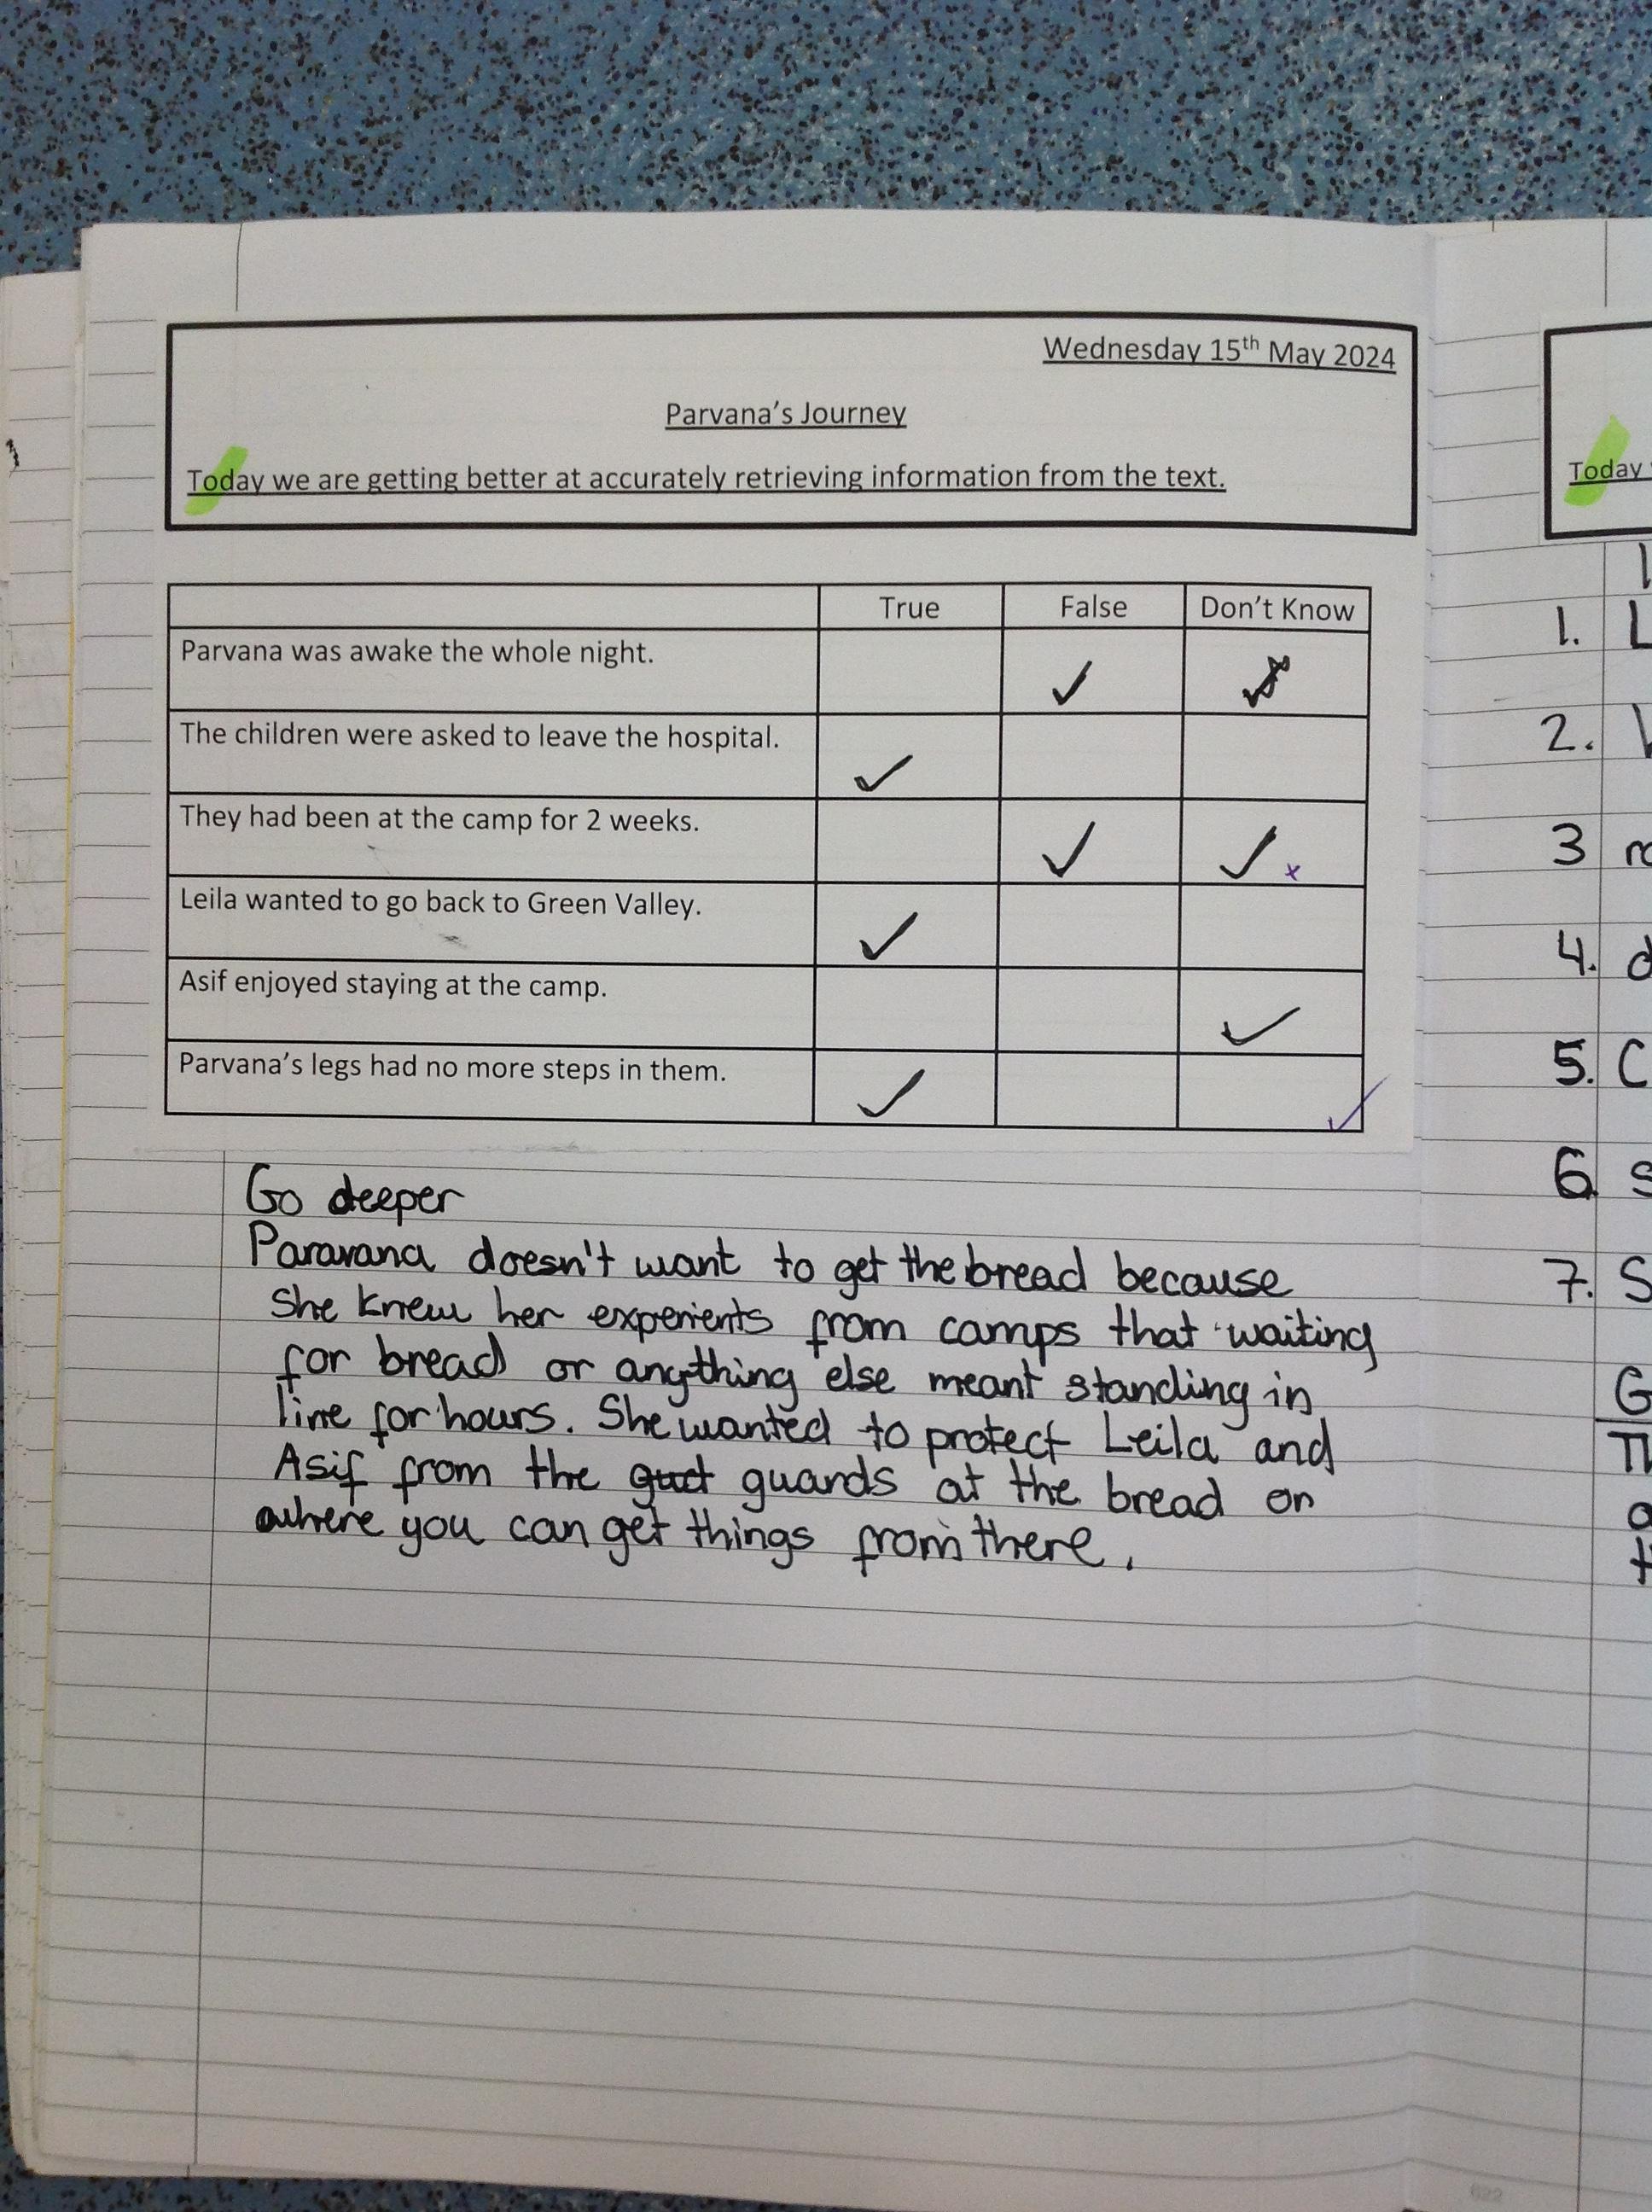 Wednesday 15th May 2024
Parvana's Journey
Today we are getting better at accurately retrieving information from the text.
True False Don't Know
Parvana was awake the whole night. ✓
The children were asked to leave the hospital. ✓
They had been at the camp for 2 weeks. ✓ ✓ x
Leila wanted to go back to Green Valley. ✓
Asif enjoyed staying at the camp. ✓
Parvana's legs had no more steps in them. ✓ ✓
Go deeper
Paravana doesn't want to get the bread because
she knew her experients from camps that waiting
for bread or anything else meant standing in
line for hours. She wanted to protect Leila and
Asif from the guards at the bread or
where you can get things from there.
Today
1.
2.
3
4.
5.
6
7.